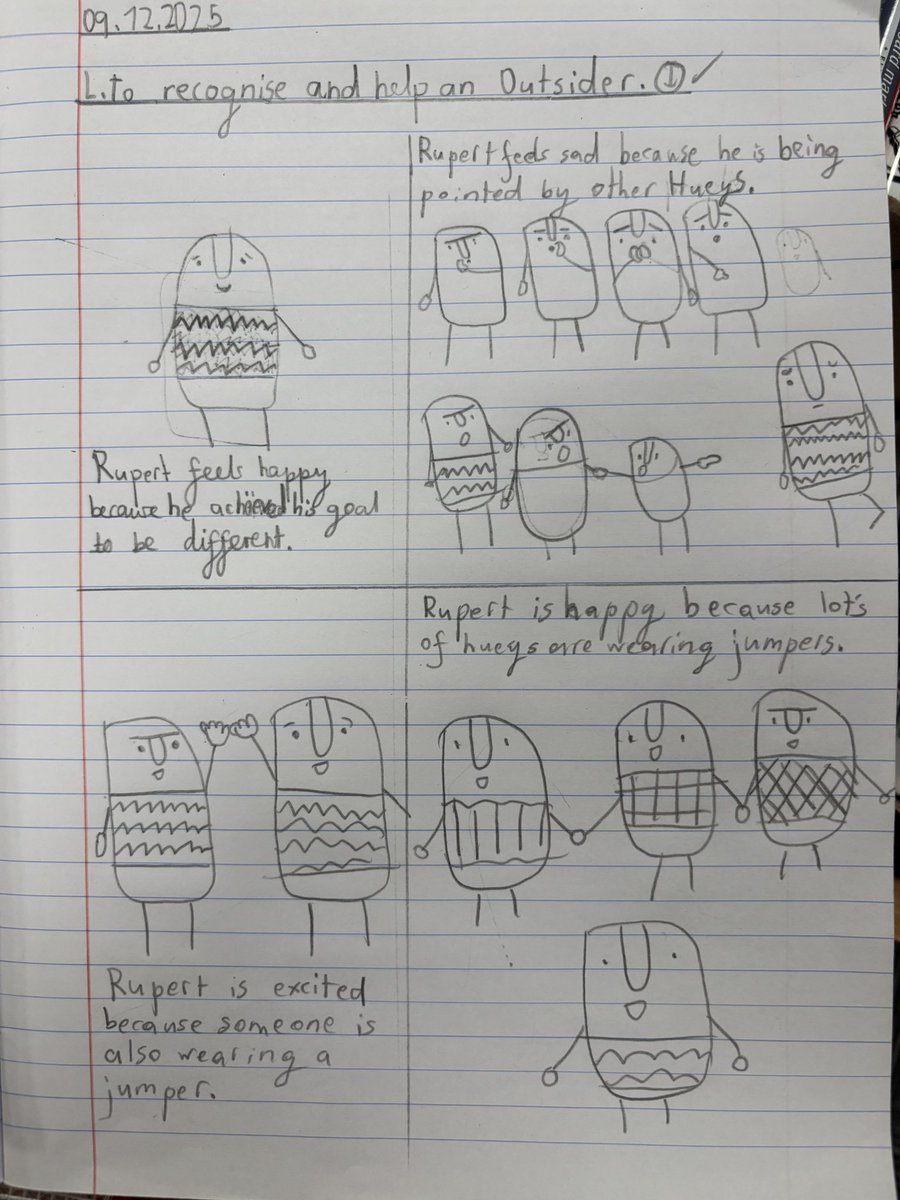 09.12.2025
L.to recognise and help an Outsider. ① ✓
Rupert feels happy
because he achieved his goal
to be different.
Rupert feels sad because he is being
pointed by other Hueys.
Rupert is excited
because someone is
also wearing a
jumper.
Rupert is happy because lot's
of hueys are wearing jumpers.